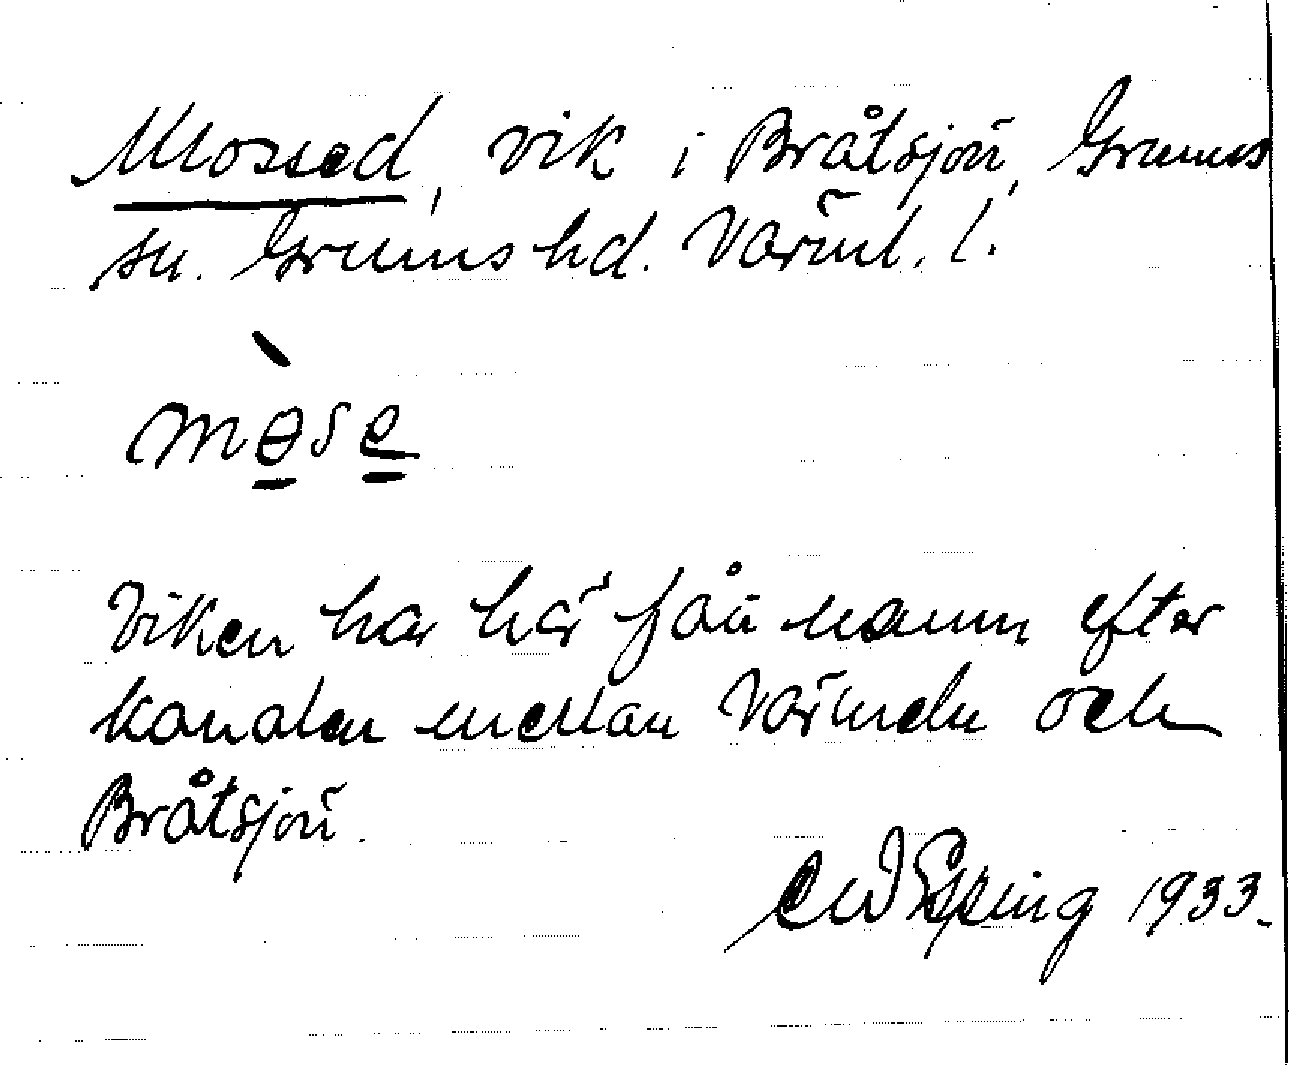 Mossed, vik i Bråtsjön, Grums
sn. Grums hd. Värml. l.
mөse
Viken har här fått namn efter
kanalen mellan Värmeln och
Bråtsjön.
1933.